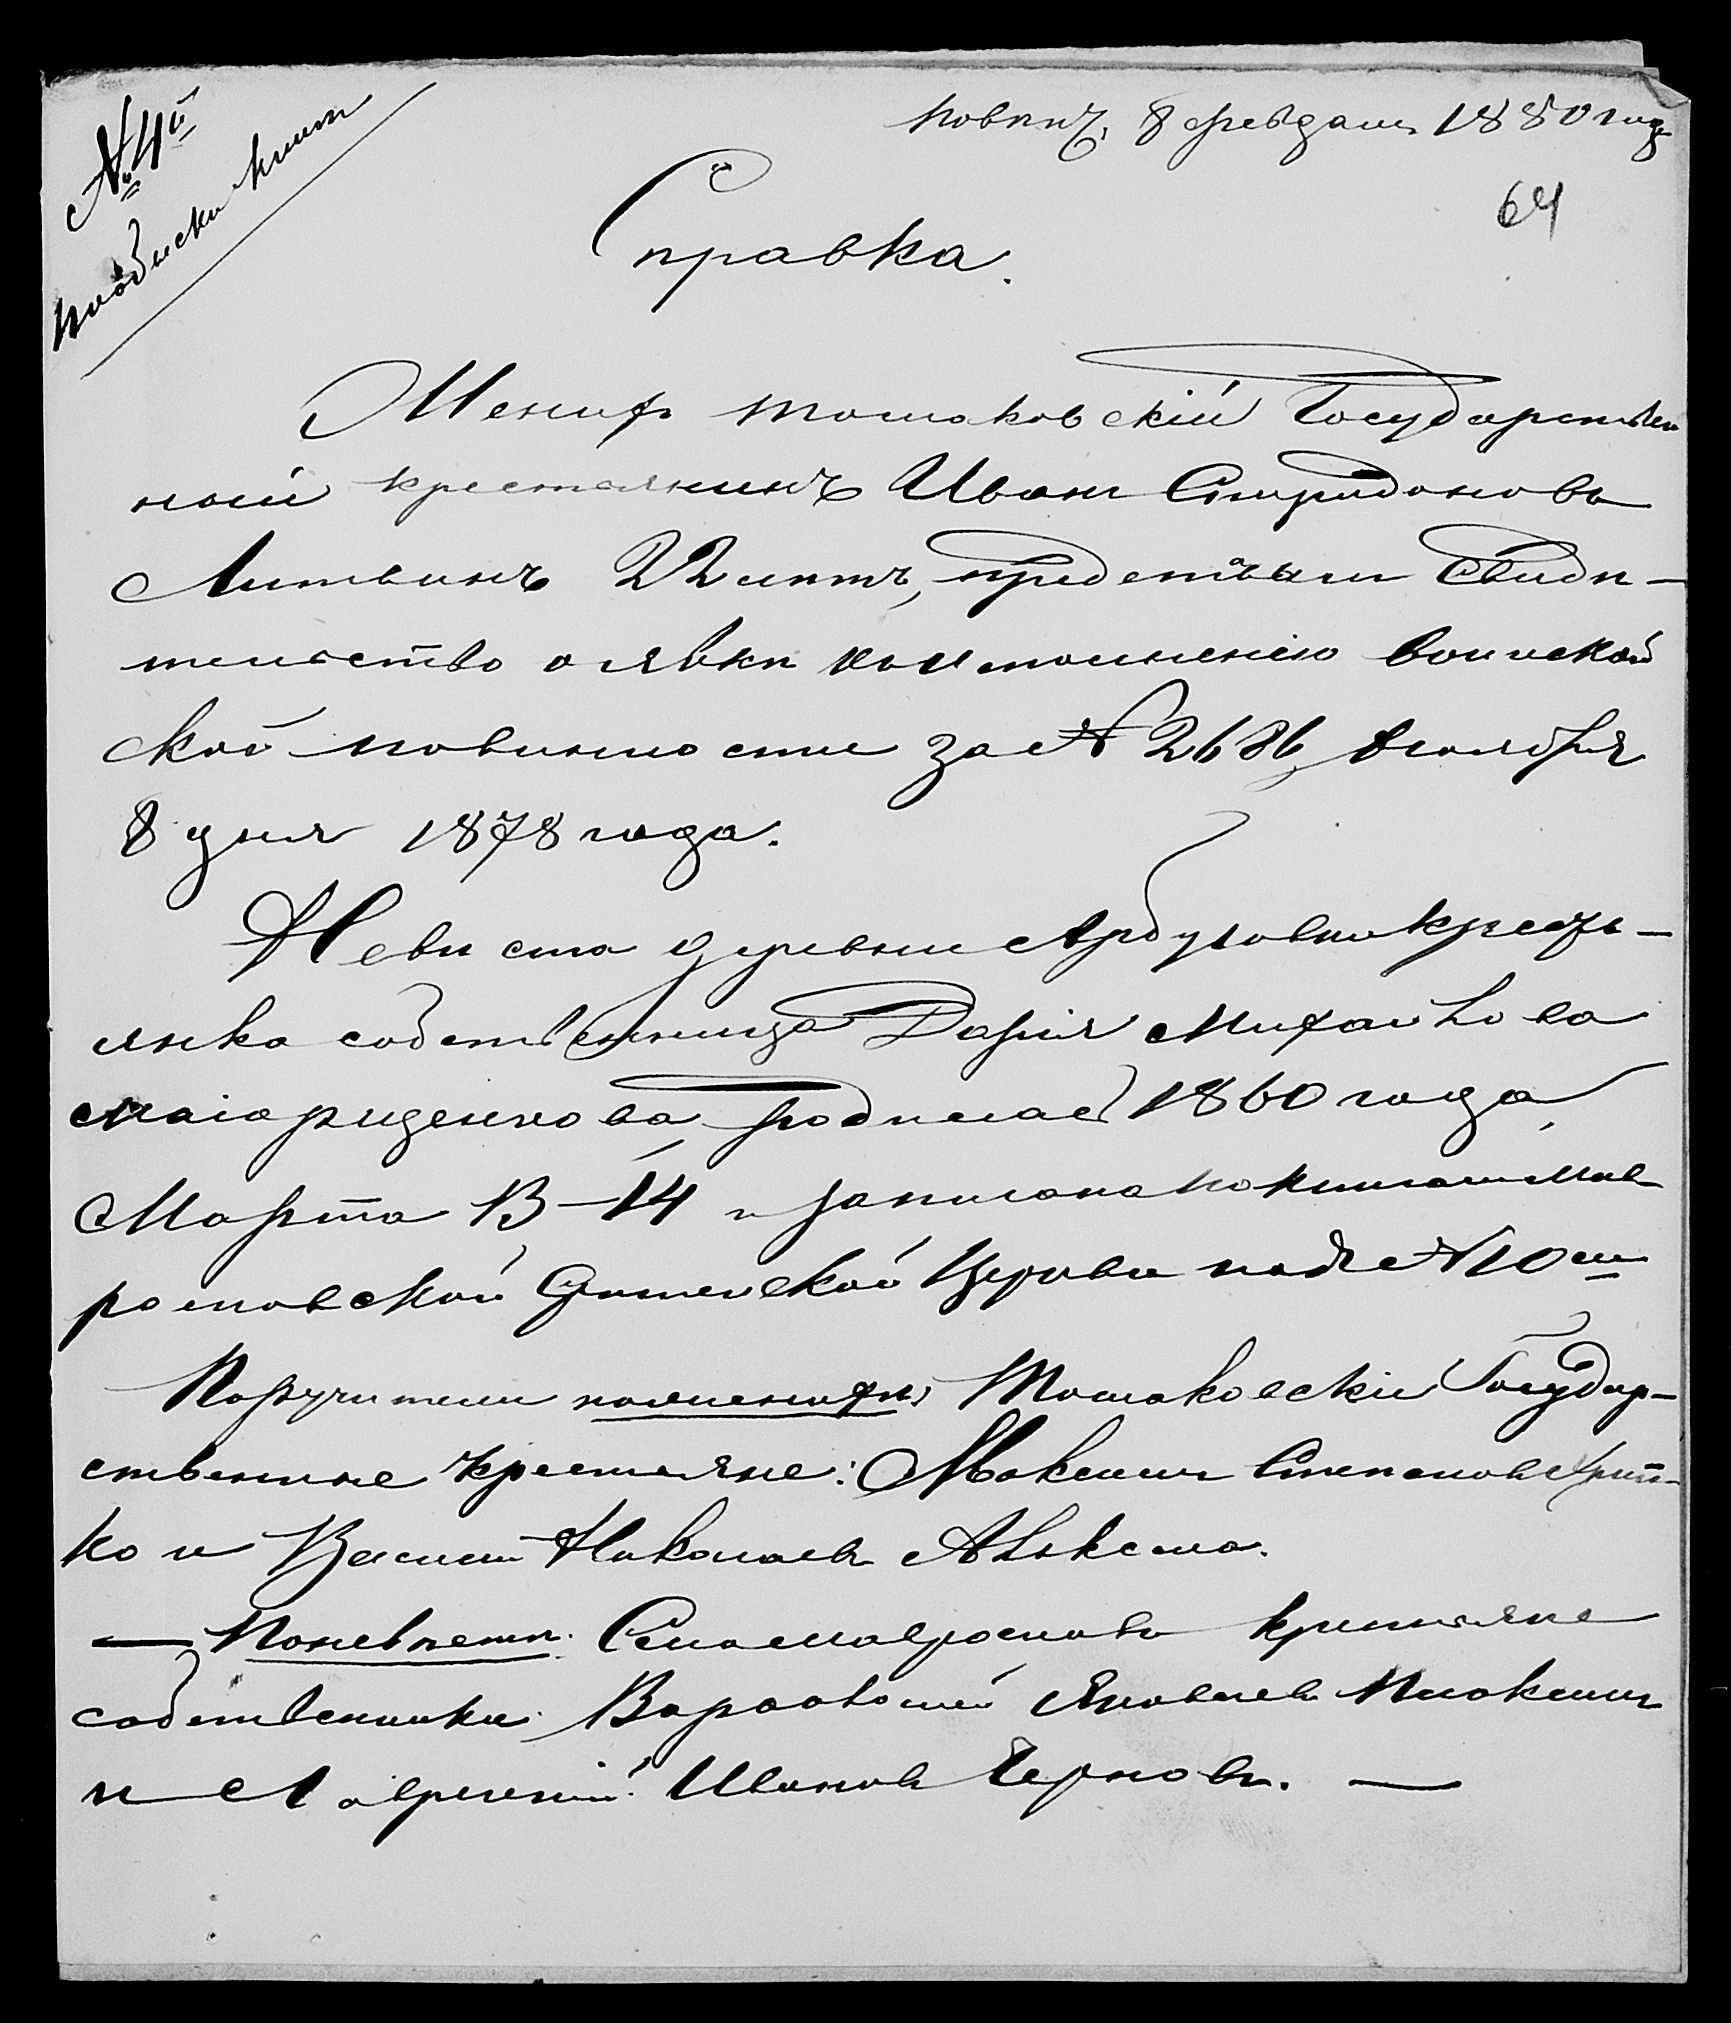 № 4й
по обыску книги
8 февраля 1880 года
64
Справка.
Женихъ томаковскій Государствен
ный крестьянинъ Иванъ Спиридоновъ
Литвинъ 22 летъ, представилъ Свидѣ-
тельство о явкѣ исполненію воинской
ской повинности за № 2686, ноября
8 дня 1878 года.
Невѣста деревни Арбузовки кресть-
янка собственница Дарія Михайлова
родилась 1860 года
Марта 13-14 и записана по книгамъ Мав
риновской Церкви подъ № 10м
Поручители по женихѣ Томаковскіе Государ-
ственные крестьяне: Максимъ Степановъ
ко и Василій Николаевъ
— По невѣстѣ крестьяне
собственники: Яковлевъ
и Лаврентій Ивановъ Черновъ. —